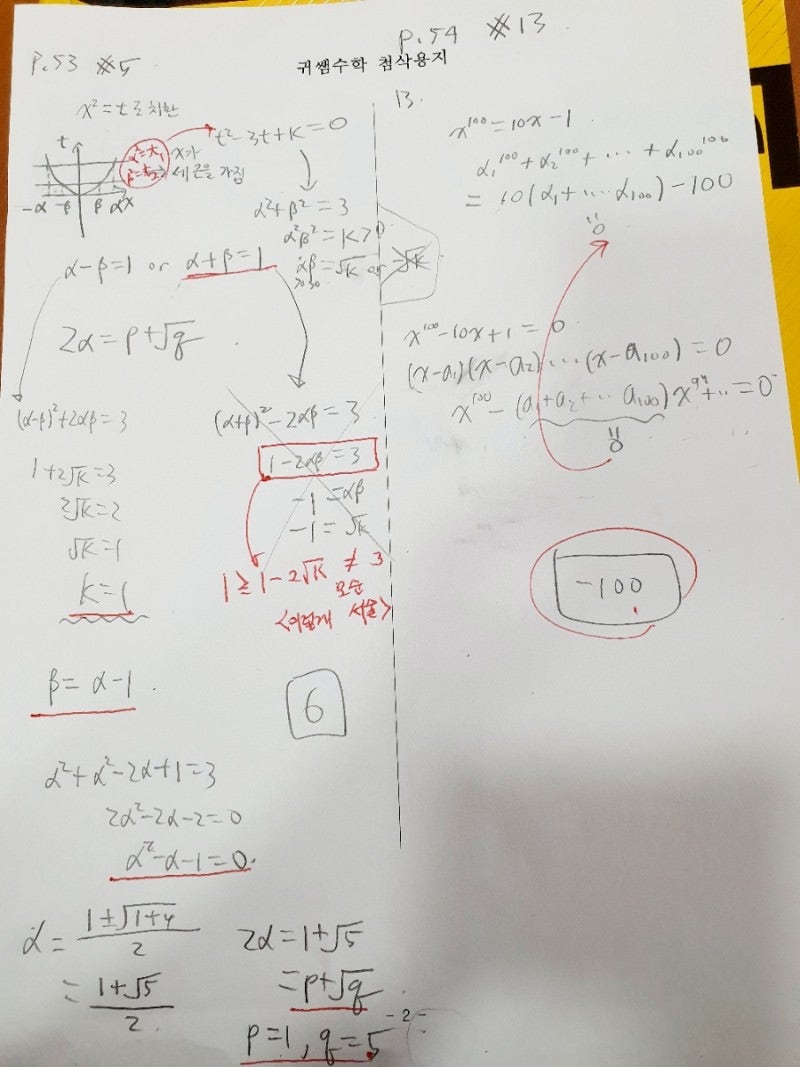 p.53 #5
p.54 #13
귀쌤수학 첨삭용지
x²=t로 치환
t
α²=t₁
β²=t₂
x가
세 근을 가짐
-α -β β α x
t²-3t+k=0
α²+β²=3
α²β²=k>0
αβ=√k or -√k
α-β=1 or α+β=1
2α=p+√q
(α-β)²+2αβ=3
1+2√k=3
2√k=2
√k=1
k=1
(α+β)²-2αβ=3
1-2αβ=3
-1=αβ
-1=√k
1≥1-2√k≠3
모순
<이렇게 서술>
β=α-1
6
α²+α²-2α+1=3
2α²-2α-2=0
α²-α-1=0
α=(1±√(1+4))/2
=(1+√5)/2
2α=1+√5
=p+√q
p=1, q=5
13.
x¹⁰⁰=10x-1
α₁¹⁰⁰+α₂¹⁰⁰+…+α₁₀₀¹⁰⁰
=10(α₁+…α₁₀₀)-100
"0
x¹⁰⁰-10x+1=0
(x-a₁)(x-a₂)…(x-a₁₀₀)=0
x¹⁰⁰-(a₁+a₂+…a₁₀₀)x⁹⁹+…=0
"0
-100
- 2 -